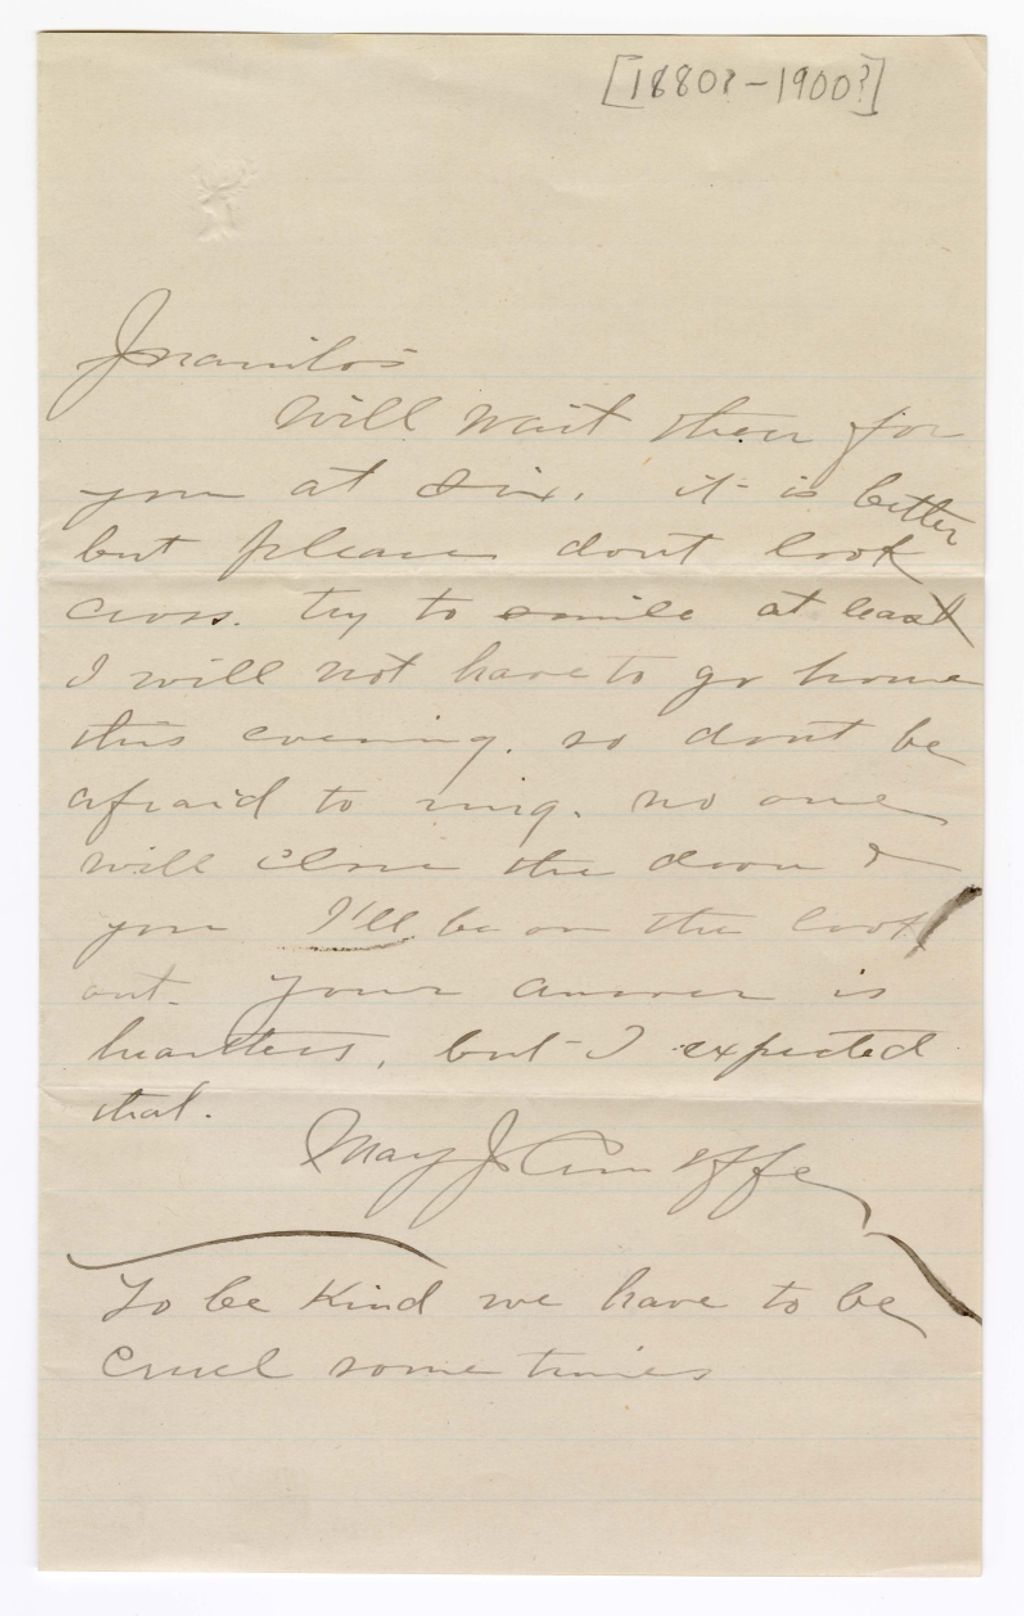 [1880?-1900?]
Juanito's
Will wait then for
you at six. it is better
but please dont look
cross. try to smile at least
I will not have to go home
this evening. so dont be
afraid to ring. no one
will close the door
you I'll be on the look
out. your answer is
heartless, but I expected
that.
May J
To be Kind we have to be
cruel some times